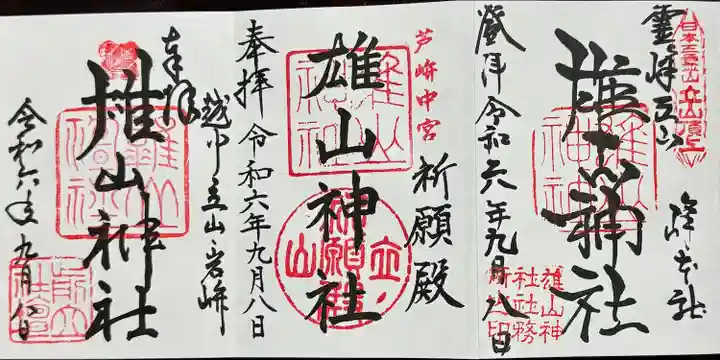 霊峰立山
登拝 令和六年九月八日
雄山神社
峰本社
雄山神社社務所印
芦峅中宮
祈願殿
雄山神社
奉拝 令和六年九月八日
奉拝
越中立山岩峅
雄山神社
令和六年九月八日